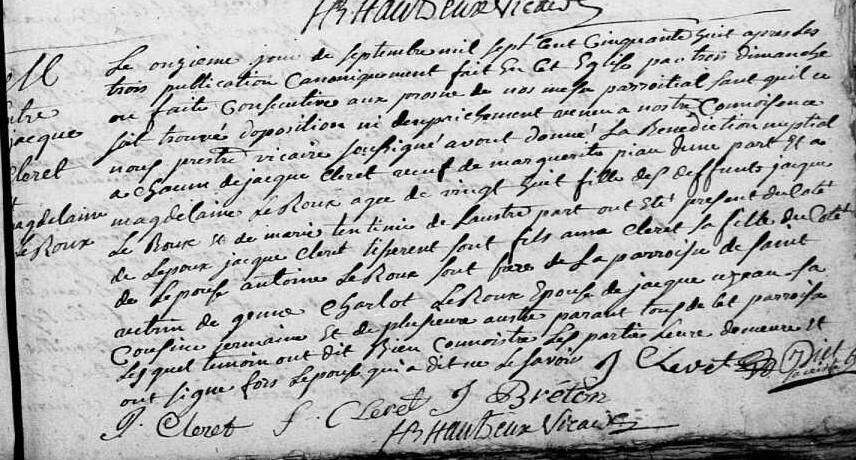 HB Hautbeux Vicaire
M
entre
jacque
Cleret
et
magdelaine
Le Roux
Le onzieme jour de septembre mil sept Cent Cinquante huit apres Les
trois publication Canoniquement fait En Cet Eglise par trois dimanche
ou faite Consecutive aux prosne de nos messe parroitial sant quil ce
soit trouvé doposition ni denpaichement venu a nostre Connoisence
nous prestre vicaire sousigné avont donné La Benediction nuptial
a Chacun de jacque Cleret veuf de marguerite piau dune part Et a
magdelaine Le Roux agee de vingt huit fille des deffunts jacque
Le Roux Et de marie de Lautre part ont Eté present du Coté
de Lepoux jacque Cleret tiserent sont fils anne Cleret sa fille du Coté
de Lepouse antoine Le Roux sont frere de La parroisse de saint
de Charlot Le Roux Epouse de jacque sa
Cousine germaine Et de plusieurs austre parant tous de Cet parroisse
Les quel temoin ont dit Bien Connoistre Les partie Leure demeure Et
ont signe fors Lepouse qui a dit ne Le savoir J Cleret
P. Cleret f. Cleret J Breton
HB Hautbeux Vicaire